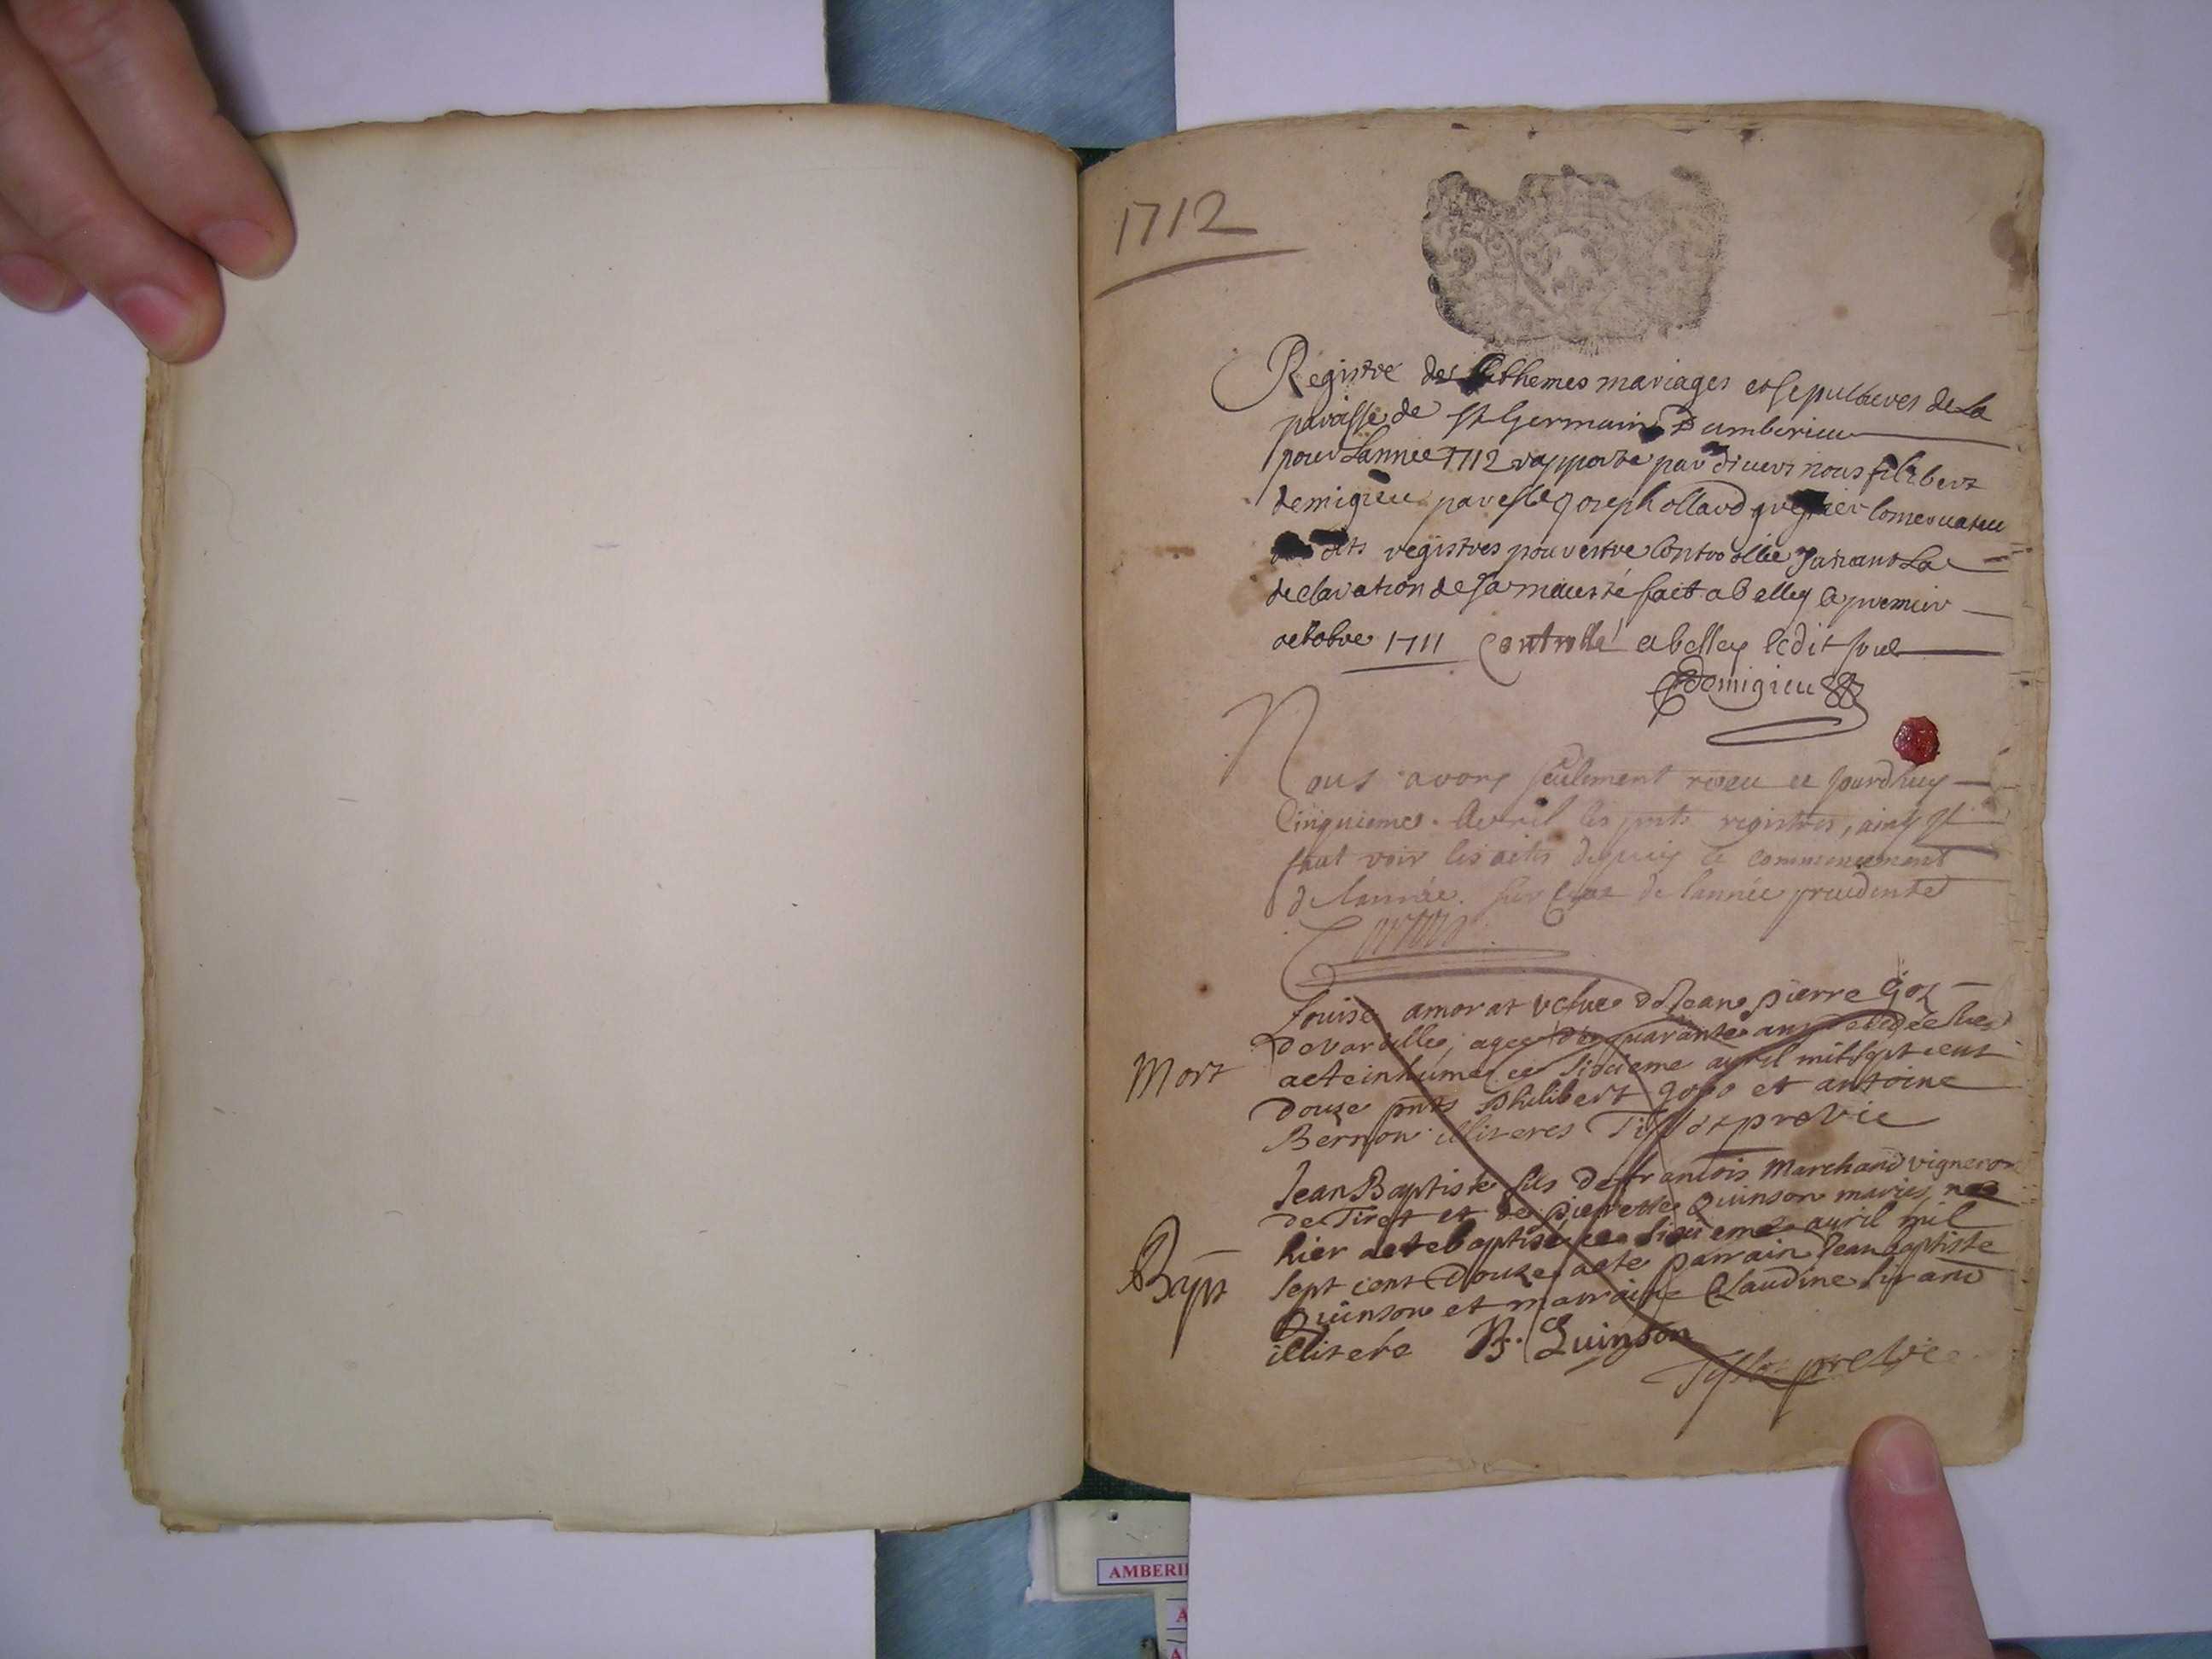 1712
Registre des Bathemes mariages et sepultures de La
paroisse de St Germain D'amberieu
pour Lannee 1712 rapporté par devers nous filibert
demigieu par Mre Joseph ollard greffier Conseruateu
des dits registres pour estre Controollé suivant La
declaration de sa maiesté fait a Belley le premier
octobre 1711 Controllé a belley ledit jour
Demigieu
Nous avons seulement receu ce jourdhuy
Cinquieme Avril les pnts registres, ainsy
faut voir les actes depuis le commencement
de lannée sur de lannée precedente
Louise amorat vefue de Jean pierre Goz
de vareille, agee de quarante ans decedée hier
a ete inhumee ce sixieme avril mil sept cent
Mort
douze pnts philibert gojo et antoine
Bernon illiteres Tissot provic
Jean Baptiste fils de francois Marchand vigneron
de Tiret et de pierrette Quinson mariés, nee
hier a ete baptisé ce sixieme avril mil
Bapt
sept cent douze a ete parrain Jean baptiste
Quinson et marraine Claudine Sirand
illitere B. Quinson
Tissot provic
AMBERI